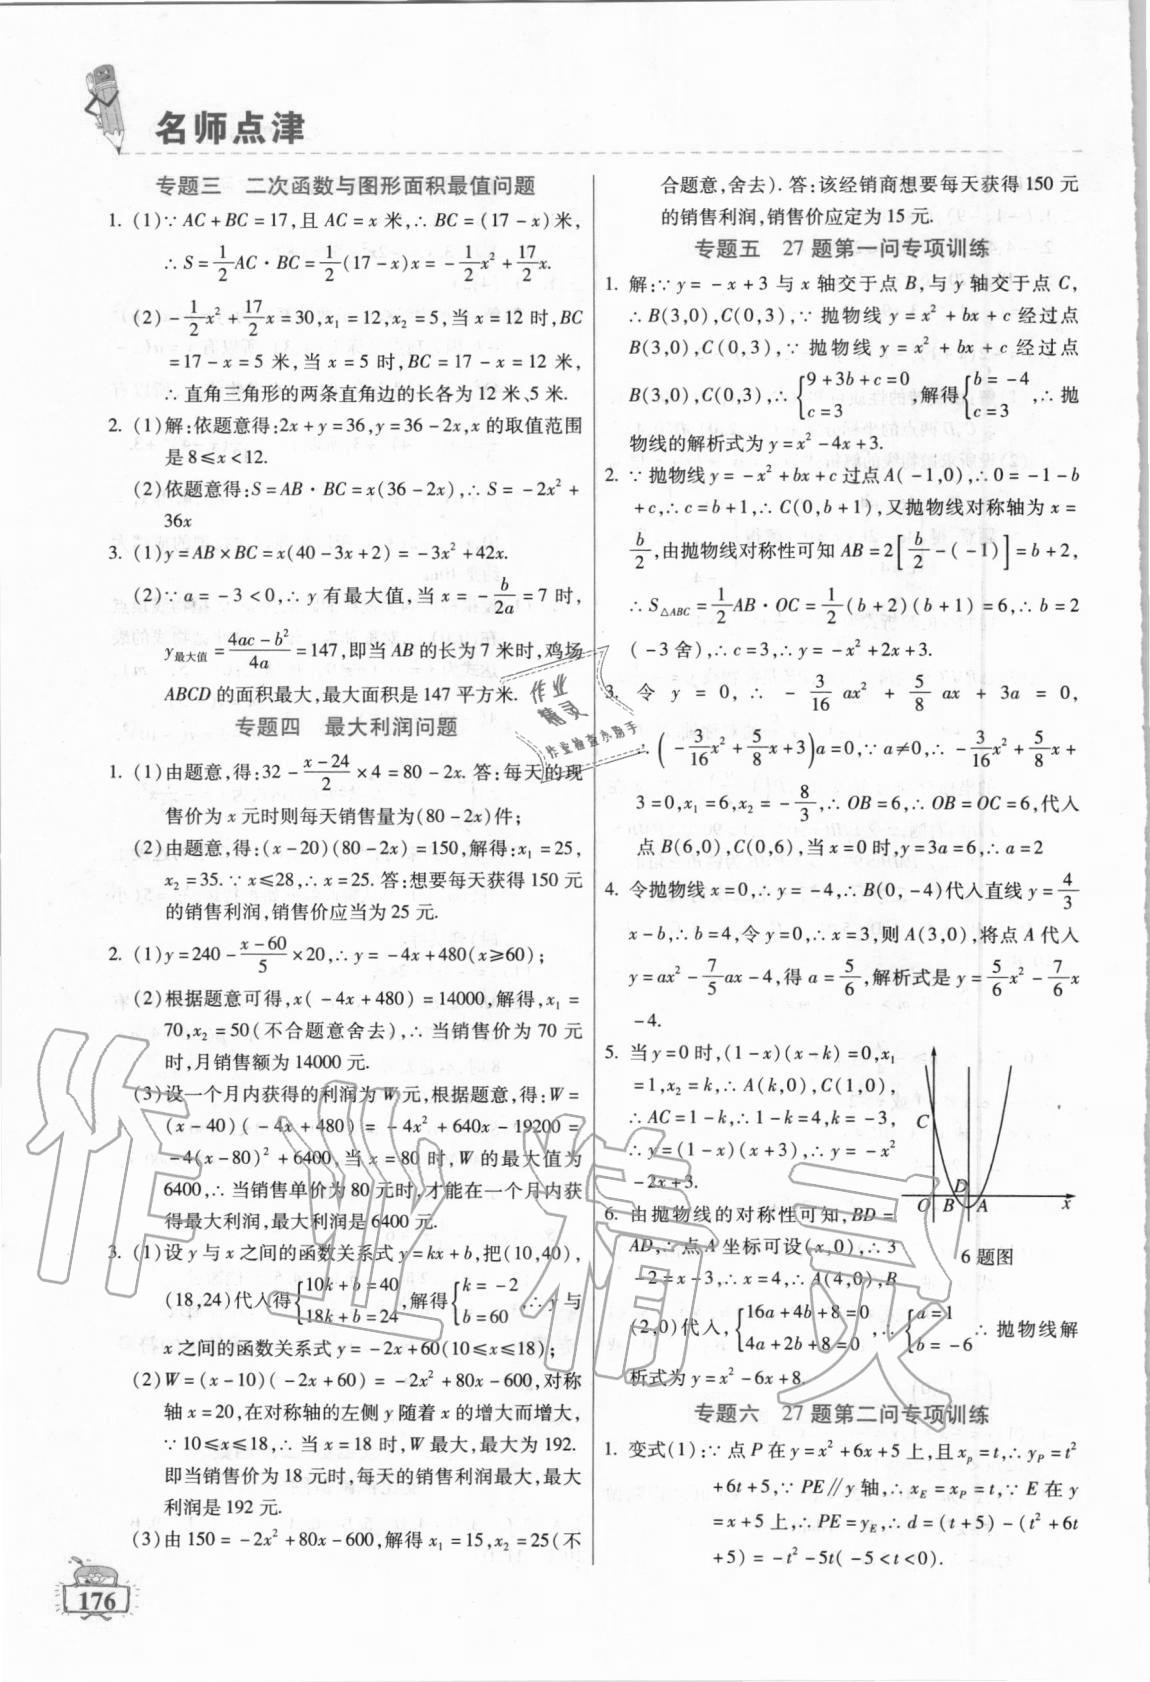 名师点津
专题三 二次函数与图形面积最值问题
1. (1)∵ AC+BC=17,且 AC=x 米,∴ BC=(17-x)米,
∴ S=1/2 AC·BC=1/2(17-x)x=-1/2x²+17/2x.
(2)-1/2x²+17/2x=30,x₁=12,x₂=5,当 x=12 时,BC
=17-x=5 米,当 x=5 时,BC=17-x=12 米,
∴ 直角三角形的两条直角边的长各为 12 米、5 米.
2. (1)解:依题意得:2x+y=36,y=36-2x,x 的取值范围
是 8⩽x<12.
(2)依题意得:S=AB·BC=x(36-2x),∴ S=-2x²+
36x
3. (1)y=AB×BC=x(40-3x+2)=-3x²+42x.
(2)∵ a=-3<0,∴ y 有最大值,当 x=-b/2a=7 时,
y最大值=(4ac-b²)/4a=147,即当 AB 的长为 7 米时,鸡场
ABCD 的面积最大,最大面积是 147 平方米.
专题四 最大利润问题
1. (1)由题意,得:32-(x-24)/2×4=80-2x. 答:每天的现
售价为 x 元时则每天销售量为(80-2x)件;
(2)由题意,得:(x-20)(80-2x)=150,解得:x₁=25,
x₂=35.∵ x⩽28,∴ x=25. 答:想要每天获得 150 元
的销售利润,销售价应当为 25 元.
2. (1)y=240-(x-60)/5×20,∴ y=-4x+480(x⩾60);
(2)根据题意可得,x(-4x+480)=14000,解得,x₁=
70,x₂=50(不合题意舍去),∴ 当销售价为 70 元
时,月销售额为 14000 元.
(3)设一个月内获得的利润为 W 元,根据题意,得:W=
(x-40)(-4x+480)=-4x²+640x-19200=
-4(x-80)²+6400,当 x=80 时,W 的最大值为
6400,∴ 当销售单价为 80 元时,才能在一个月内获
得最大利润,最大利润是 6400 元.
3. (1)设 y 与 x 之间的函数关系式 y=kx+b,把(10,40),
(18,24)代入得{10k+b=40 18k+b=24,解得{k=-2 b=60∴ y 与
x 之间的函数关系式 y=-2x+60(10⩽x⩽18);
(2)W=(x-10)(-2x+60)=-2x²+80x-600,对称
轴 x=20,在对称轴的左侧 y 随着 x 的增大而增大,
∵ 10⩽x⩽18,∴ 当 x=18 时,W 最大,最大为 192.
即当销售价为 18 元时,每天的销售利润最大,最大
利润是 192 元.
(3)由 150=-2x²+80x-600,解得 x₁=15,x₂=25(不
合题意,舍去). 答:该经销商想要每天获得 150 元
的销售利润,销售价应定为 15 元.
专题五 27 题第一问专项训练
1. 解:∵ y=-x+3 与 x 轴交于点 B,与 y 轴交于点 C,
∴ B(3,0),C(0,3),∵ 抛物线 y=x²+bx+c 经过点
B(3,0),C(0,3),∵ 抛物线 y=x²+bx+c 经过点
B(3,0),C(0,3),∴{9+3b+c=0 c=3,解得{b=-4 c=3,∴ 抛
物线的解析式为 y=x²-4x+3.
2. ∵ 抛物线 y=-x²+bx+c 过点 A(-1,0),∴ 0=-1-b
+c,∴ c=b+1,∴ C(0,b+1),又抛物线对称轴为 x=
b/2,由抛物线对称性可知 AB=2[b/2-(-1)]=b+2,
∴ S△ABC=1/2AB·OC=1/2(b+2)(b+1)=6,∴ b=2
(-3 舍),∴ c=3,∴ y=-x²+2x+3.
3. 令 y=0,∴ -3/16ax²+5/8ax+3a=0,
∴ (-3/16x²+5/8x+3)a=0,∵ a≠0,∴ -3/16x²+5/8x+
3=0,x₁=6,x₂=-8/3,∴ OB=6,∴ OB=OC=6,代入
点 B(6,0),C(0,6),当 x=0 时,y=3a=6,∴ a=2
4. 令抛物线 x=0,∴ y=-4,∴ B(0,-4)代入直线 y=4/3
x-b,∴ b=4,令 y=0,∴ x=3,则 A(3,0),将点 A 代入
y=ax²-7/5ax-4,得 a=5/6,解析式是 y=5/6x²-7/6x
-4.
5. 当 y=0 时,(1-x)(x-k)=0,x₁
=1,x₂=k,∴ A(k,0),C(1,0),
∴ AC=1-k,∴ 1-k=4,k=-3,
∴ y=(1-x)(x+3),∴ y=-x²
-2x+3.
6. 由抛物线的对称性可知,BD=
AD,∴ 点 A 坐标可设(x,0),∴ 3
-2=x-3,∴ x=4,∴ A(4,0),B
(2,0)代入,{16a+4b+8=0 4a+2b+8=0,∴{a=1 b=-6∴ 抛物线解
析式为 y=x²-6x+8.
C
O B D A x
6 题图
专题六 27 题第二问专项训练
1. 变式(1):∵ 点 P 在 y=x²+6x+5 上,且 xₚ=t,∴ y_P=t²
+6t+5,∵ PE∥y 轴,∴ x_E=x_P=t,∵ E 在 y
=x+5 上,∴ PE=y_E,∴ d=(t+5)-(t²+6t
+5)=-t²-5t(-5<t<0).
176
作业精灵
作业
精灵
作业检查小助手